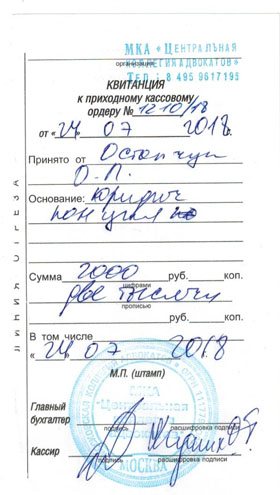 МКА «ЦЕНТРАЛЬНАЯ
КОЛЛЕГИЯ АДВОКАТОВ»
организация
ТЕЛ.: 8 495 9617195
КВИТАНЦИЯ
к приходному кассовому
ордеру № 1210/18
от « 24 » 07 2018 г.
Принято от Остапчук
О. П.
Основание: юридич
консульт
Сумма 2000 руб. коп.
цифрами
две тысячи руб. коп.
прописью
В том числе
« 24 » 07 2018
М.П. (штамп)
Главный
бухгалтер
подпись расшифровка подписи
Кассир
подпись расшифровка подписи
МОСКВА
ЛИНИЯ ОТРЕЗА